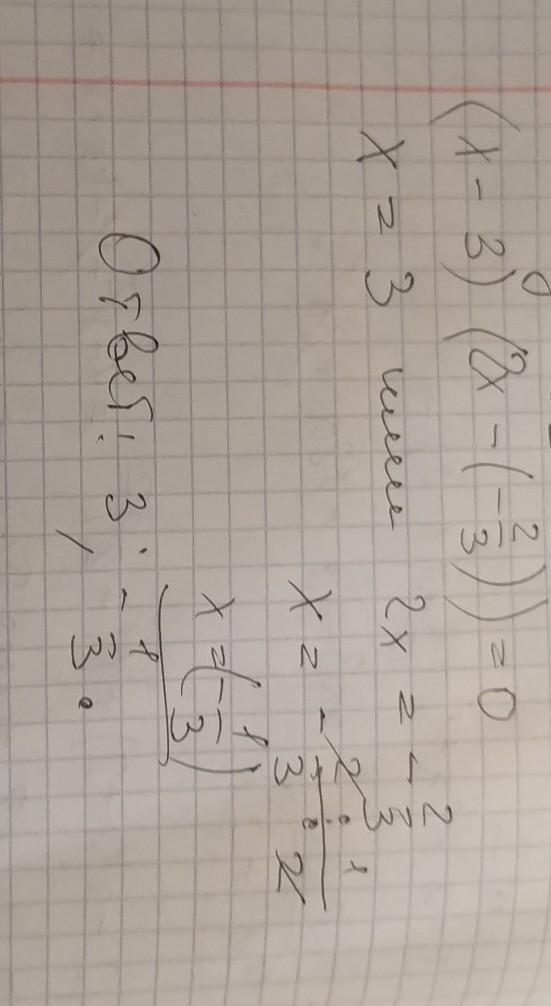 (x - 3) (2x - (-2/3)) = 0
x = 3 или 2x = -2/3
x = -2/3 : 2
x = (-1/3)
Ответ: 3; -1/3.